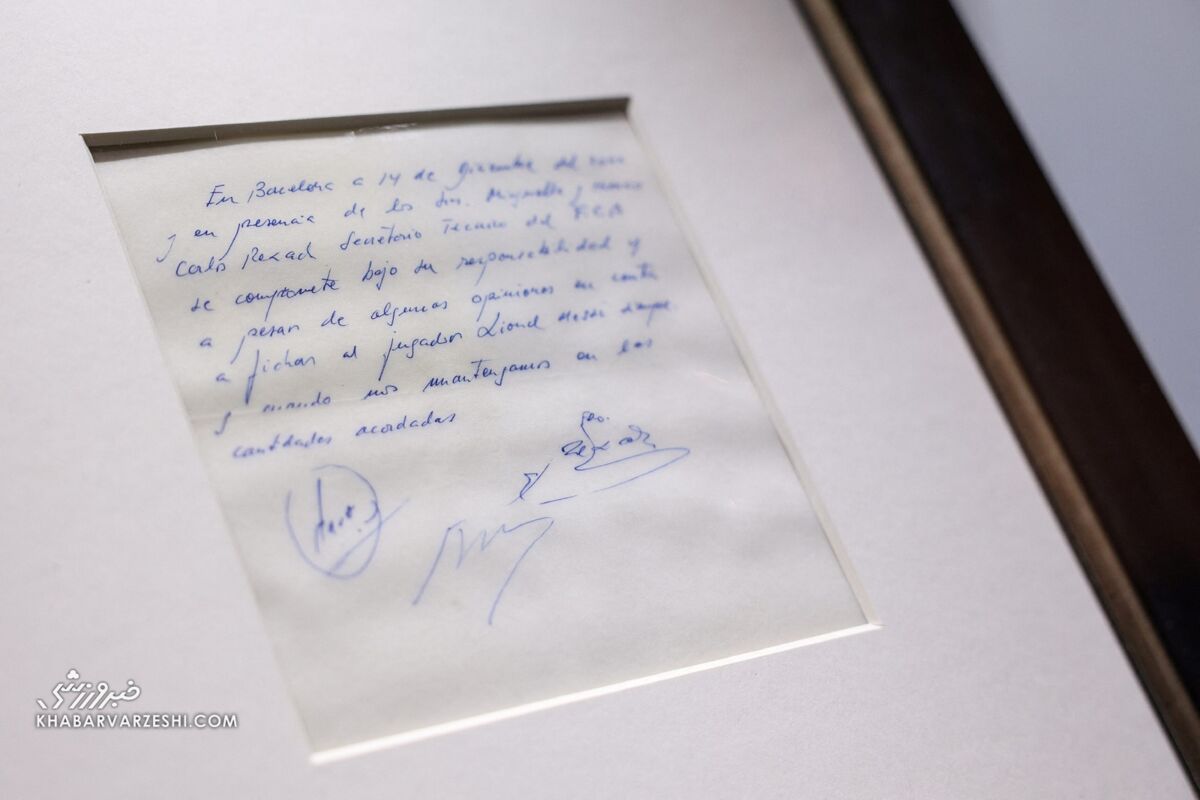 En Barcelona a 14 de Diciembre del 2000
y en presencia de los Srs. Minguella y Horacio
Carlos Rexach Secretario Tecnico del F.C.B
se compromete bajo su responsabilidad y
a pesar de algunas opiniones en contra
a fichar al jugador Lionel Messi siempre
y cuando nos mantengamos en las
cantidades acordadas
خبرورزشی
KHABARVARZESHI.COM